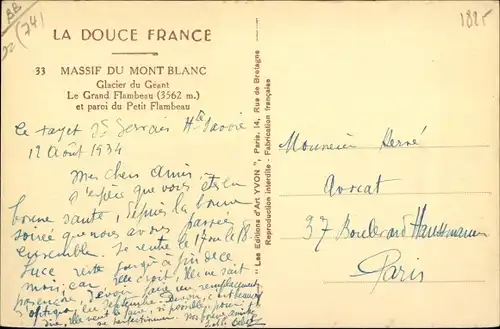 BB
(74)
1825
LA DOUCE FRANCE
33 MASSIF DU MONT BLANC
Glacier du Géant
Le Grand Flambeau (3562 m.)
et paroi du Petit Flambeau
Le Fayet St Gervais Hte Savoie
12 Août 1934
Mes chers Amis,
J'espère que vous êtes en
bonne santé, depuis la bonne
soirée que nous avons passée
ensemble. Je rentre le 17 ou le 18.
Luce reste jusqu'à fin de ce
mois; car elle croit, elle ne sait
pas encore, devoir faire un remplacement
"Les Editions d'Art YVON", Paris, 14, Rue de Bretagne
Reproduction interdite - Fabrication française
Monsieur Hervé
Avocat
37 Boulevard Haussmann
Paris